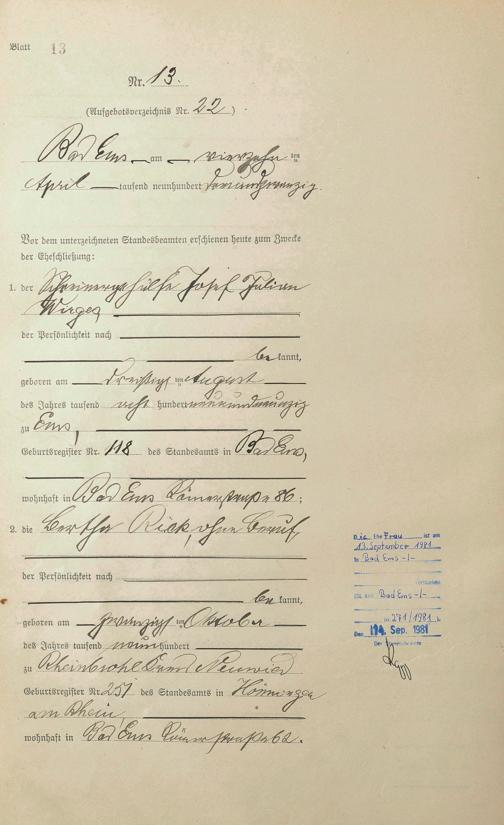 Blatt 13
Nr. 13.
(Aufgebotsverzeichnis Nr. 22).
Bad Ems am vierzehnten
April tausend neunhundert
Vor dem unterzeichneten Standesbeamten erschienen heute zum Zwecke
der Eheschließung:
1. der Schreinergehülfe Josef Julian
Wirges
der Persönlichkeit nach
bekannt,
geboren am dreißigsten August
des Jahres tausend achthundertneunundneunzig
zu Ems,
Geburtsregister Nr. 118 des Standesamts in Bad Ems,
wohnhaft in Bad Ems Römerstraße 86;
2. die Bertha Rick, ohne Beruf,
der Persönlichkeit nach
bekannt,
geboren am zwanzigsten Oktober
des Jahres tausend neunhundert
zu Rheinbrohl Kreis Neuwied
Geburtsregister Nr. 251 des Standesamts in Hönningen
am Rhein,
wohnhaft in Bad Ems Römerstraße 62.
Die Ehefrau ist am
13. September 1981
in Bad Ems -/-
verstorben
Bad Ems -/-
Nr. 271/1981
Den 14. Sep. 1981
Der Standesbeamte